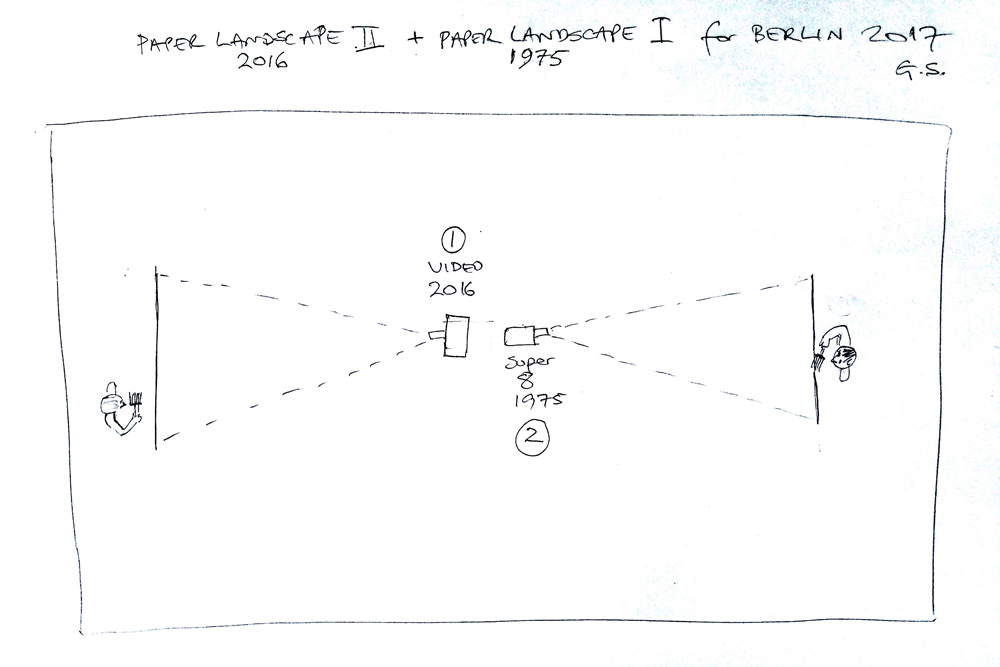 PAPER LANDSCAPE II + PAPER LANDSCAPE I for BERLIN 2017
2016 1975
G.S.
1
VIDEO
2016
Super
8
1975
2